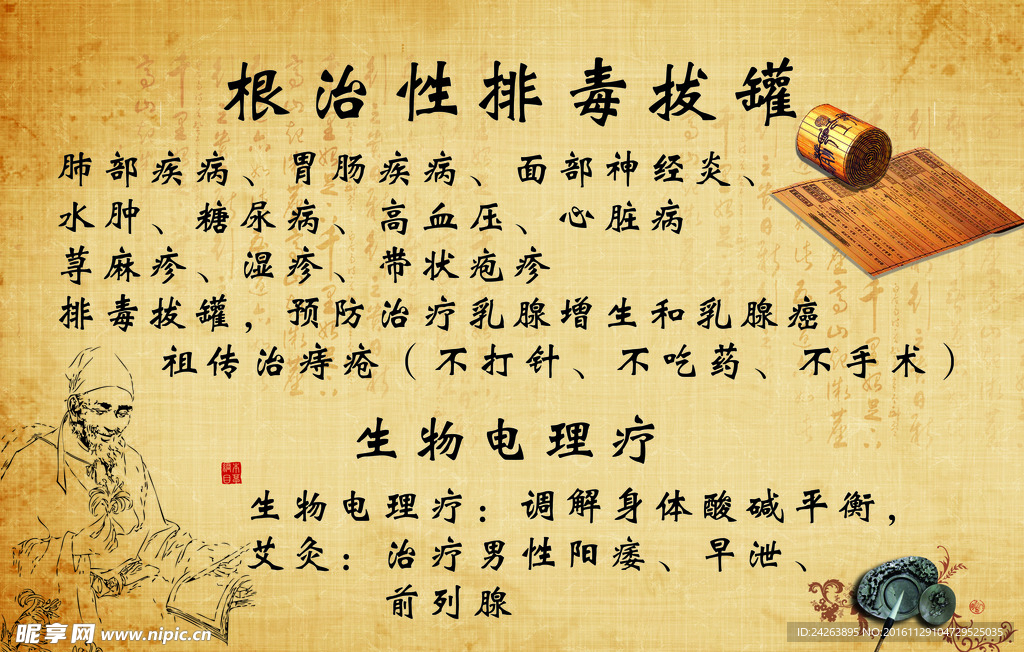 根治性排毒拔罐
肺部疾病、胃肠疾病、面部神经炎、
水肿、糖尿病、高血压、心脏病
荨麻疹、湿疹、带状疱疹
排毒拔罐，预防治疗乳腺增生和乳腺癌
祖传治痔疮（不打针、不吃药、不手术）
生物电理疗
生物电理疗：调解身体酸碱平衡，
艾灸：治疗男性阳痿、早泄、
前列腺
昵享网 www.nipic.cn
ID:24263895 NO:20161129104729525035